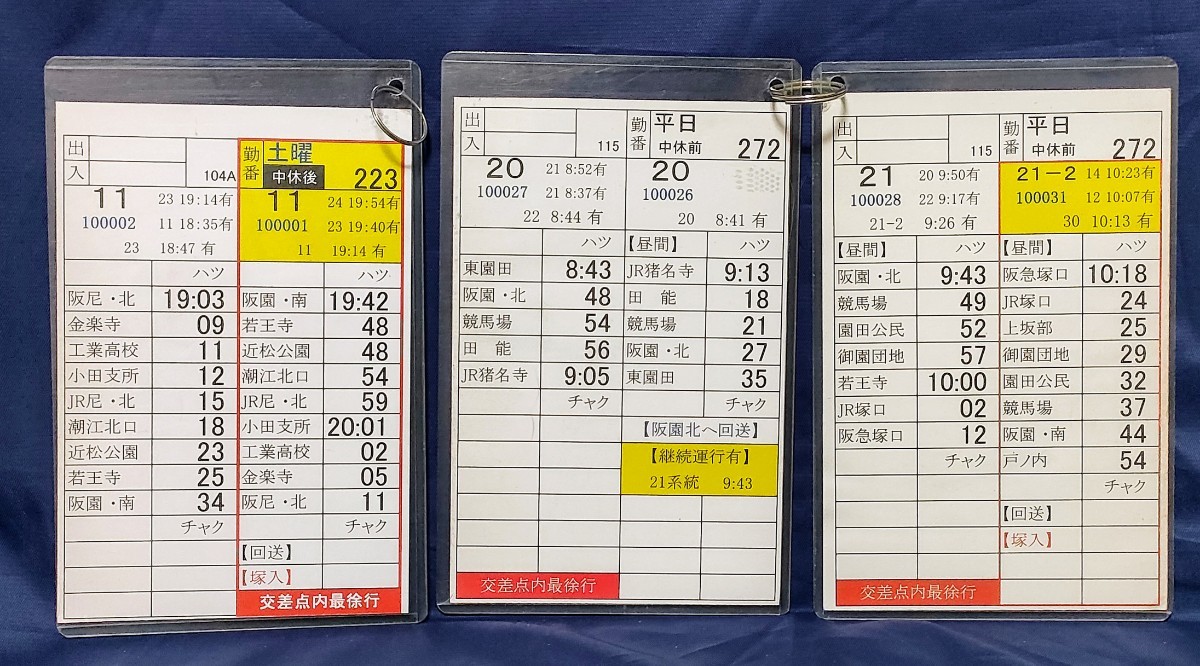 出
入
104A
勤番
土曜
中休後
223
11
100002
23 19:14有
11 18:35有
23 18:47 有
11
100001
24 19:54有
23 19:40有
11 19:14 有
ハツ
ハツ
阪尼・北 19:03
金楽寺 09
工業高校 11
小田支所 12
JR尼・北 15
潮江北口 18
近松公園 23
若王寺 25
阪園・南 34
チャク
阪園・南 19:42
若王寺 48
近松公園 48
潮江北口 54
JR尼・北 59
小田支所 20:01
工業高校 02
金楽寺 05
阪尼・北 11
チャク
【回送】
【塚入】
交差点内最徐行
出
入
115
勤番
平日
中休前
272
20
100027
21 8:52有
21 8:37有
22 8:44 有
20
100026
20 8:41 有
ハツ
東園田 8:43
阪園・北 48
競馬場 54
田 能 56
JR猪名寺 9:05
チャク
【昼間】 ハツ
JR猪名寺 9:13
田 能 18
競馬場 21
阪園・北 27
東園田 35
チャク
【阪園北へ回送】
【継続運行有】
21系統 9:43
交差点内最徐行
出
入
115
勤番
平日
中休前
272
21
100028
20 9:50有
22 9:17有
21-2 9:26 有
21−2
100031
14 10:23有
12 10:07有
30 10:13 有
【昼間】 ハツ
阪園・北 9:43
競馬場 49
園田公民 52
御園団地 57
若王寺 10:00
JR塚口 02
阪急塚口 12
チャク
【昼間】 ハツ
阪急塚口 10:18
JR塚口 24
上坂部 25
御園団地 29
園田公民 32
競馬場 37
阪園・南 44
戸ノ内 54
チャク
【回送】
【塚入】
交差点内最徐行